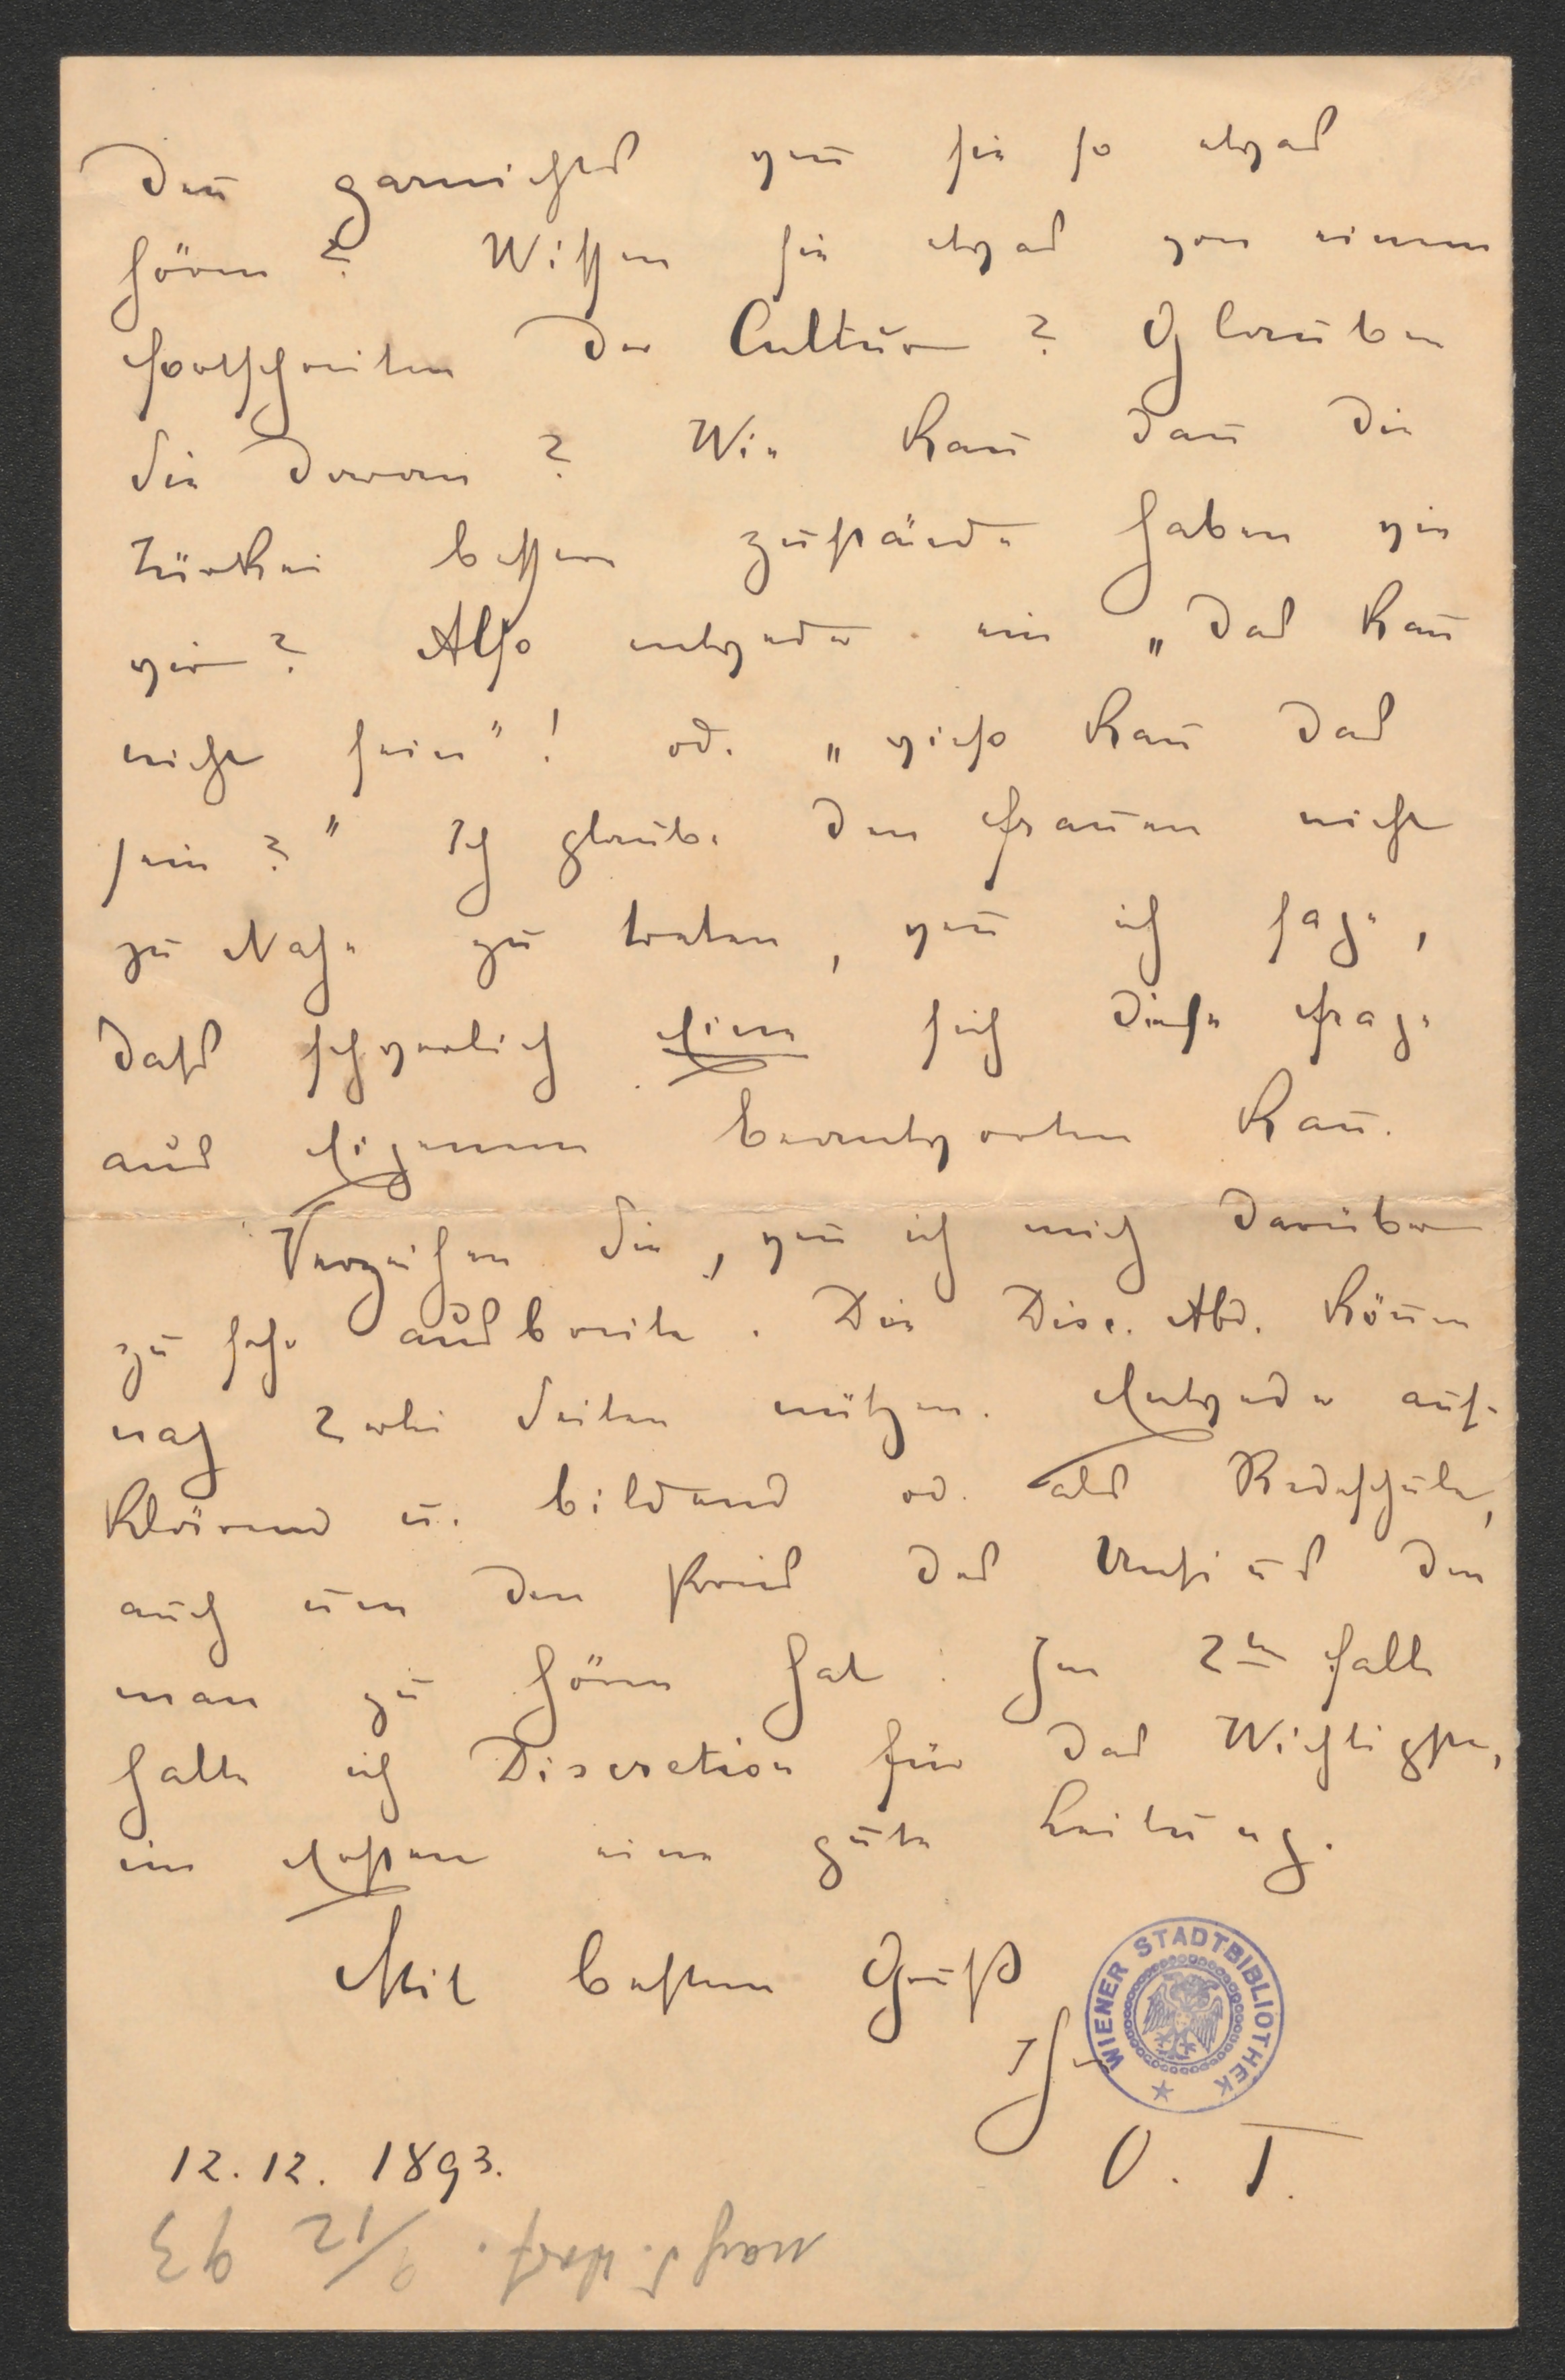 den̄ garnichts wen̄ sie so etwas
hören? Wissen sie etwas von einem
Fortschreiten der Cultur? Glauben
Sie daran? Wie kan̄ dan̄ die
Türkei besser Zustände haben wie
wir? Also entweder ein „Das kan̄
nicht sein"! od. „wieso kan̄ das
sein?" Ich glaube den Frauen nicht
zu Nahe zu treten, wen̄ ich sage,
dass schwerlich Eine sich diese Frage
aus Eigenem beantworten kan̄.
Verzeihen Sie, wen̄ ich mich darüber
zu sehr ausbreite. Die Disc. Abd. kön̄en
nach 2erlei Seiten nützen. Entweder auf-
klärend u. bildend od. als Redeschule,
auch um den Preis des Unsinns den
man zu hören hat. Im 2ten Falle
halte ich Discretion für das Wichtigste,
im Ersten eine gute Leitung.
Mit bestem Gruß
Ihr
O. T.
WIENER STADTBIBLIOTHEK
12.12.1893.
9/12 93